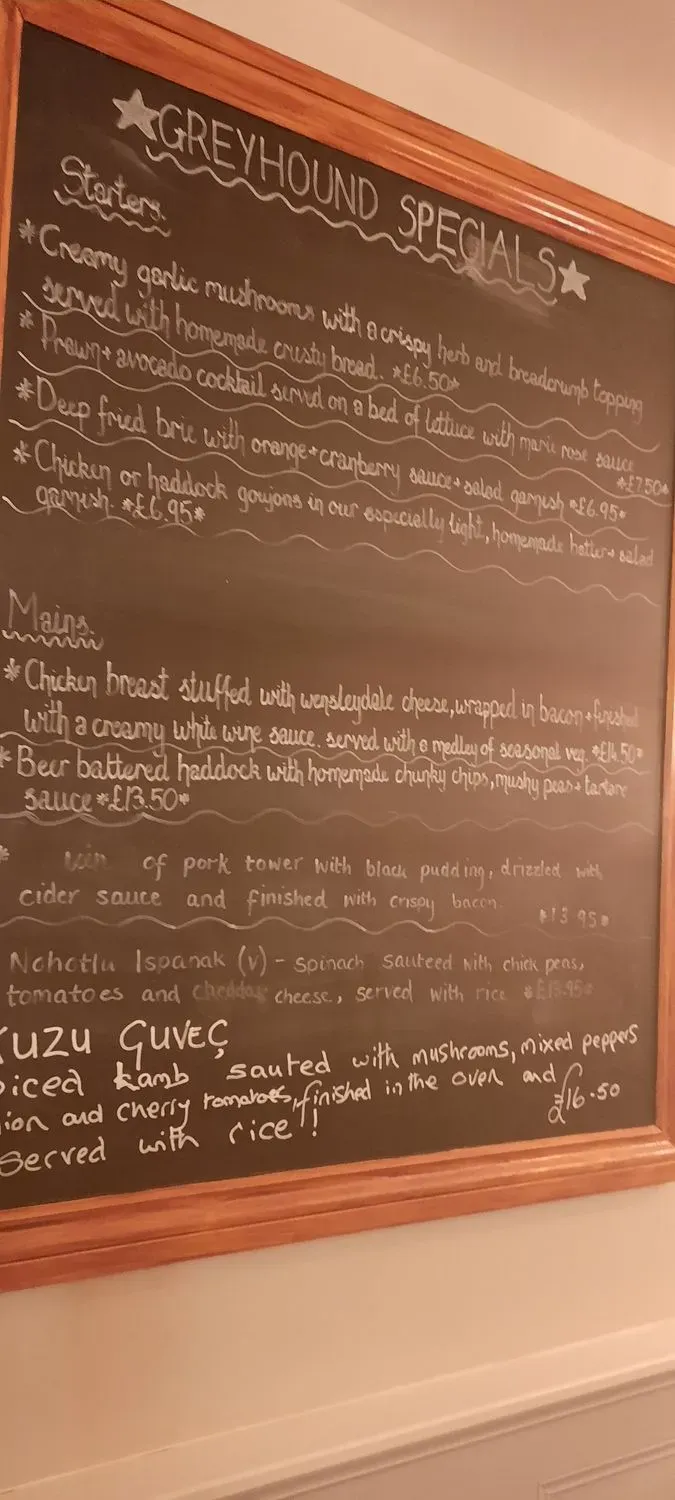 GREYHOUND SPECIALS
Starters.
*Creamy garlic mushrooms with a crispy herb and breadcrumb topping
served with homemade crusty bread. *£6.50*
* Prawn + avocado cocktail served on a bed of lettuce with marie rose sauce
*£7.50*
*Deep fried brie with orange + cranberry sauce + salad garnish *£6.95*
*Chicken or haddock goujons in our especially light, homemade batter + salad
garnish. *£6.95*
Mains.
*Chicken breast stuffed with wensleydale cheese, wrapped in bacon + finished
with a creamy white wine sauce. served with a medley of seasonal veg. *£14.50*
*Beer battered haddock with homemade chunky chips, mushy peas + tartare
sauce *£13.50*
* of pork tower with black pudding, drizzled with
cider sauce and finished with crispy bacon. *13.95*
Nohotlu Ispanak (v) - spinach sauteed with chick peas,
tomatoes and cheddar cheese, served with rice *£13.95*
UZU GUVEÇ
iced Lamb sauted with mushrooms, mixed peppers
ion and cherry tomatoes, finished in the oven and
served with rice! £16.50